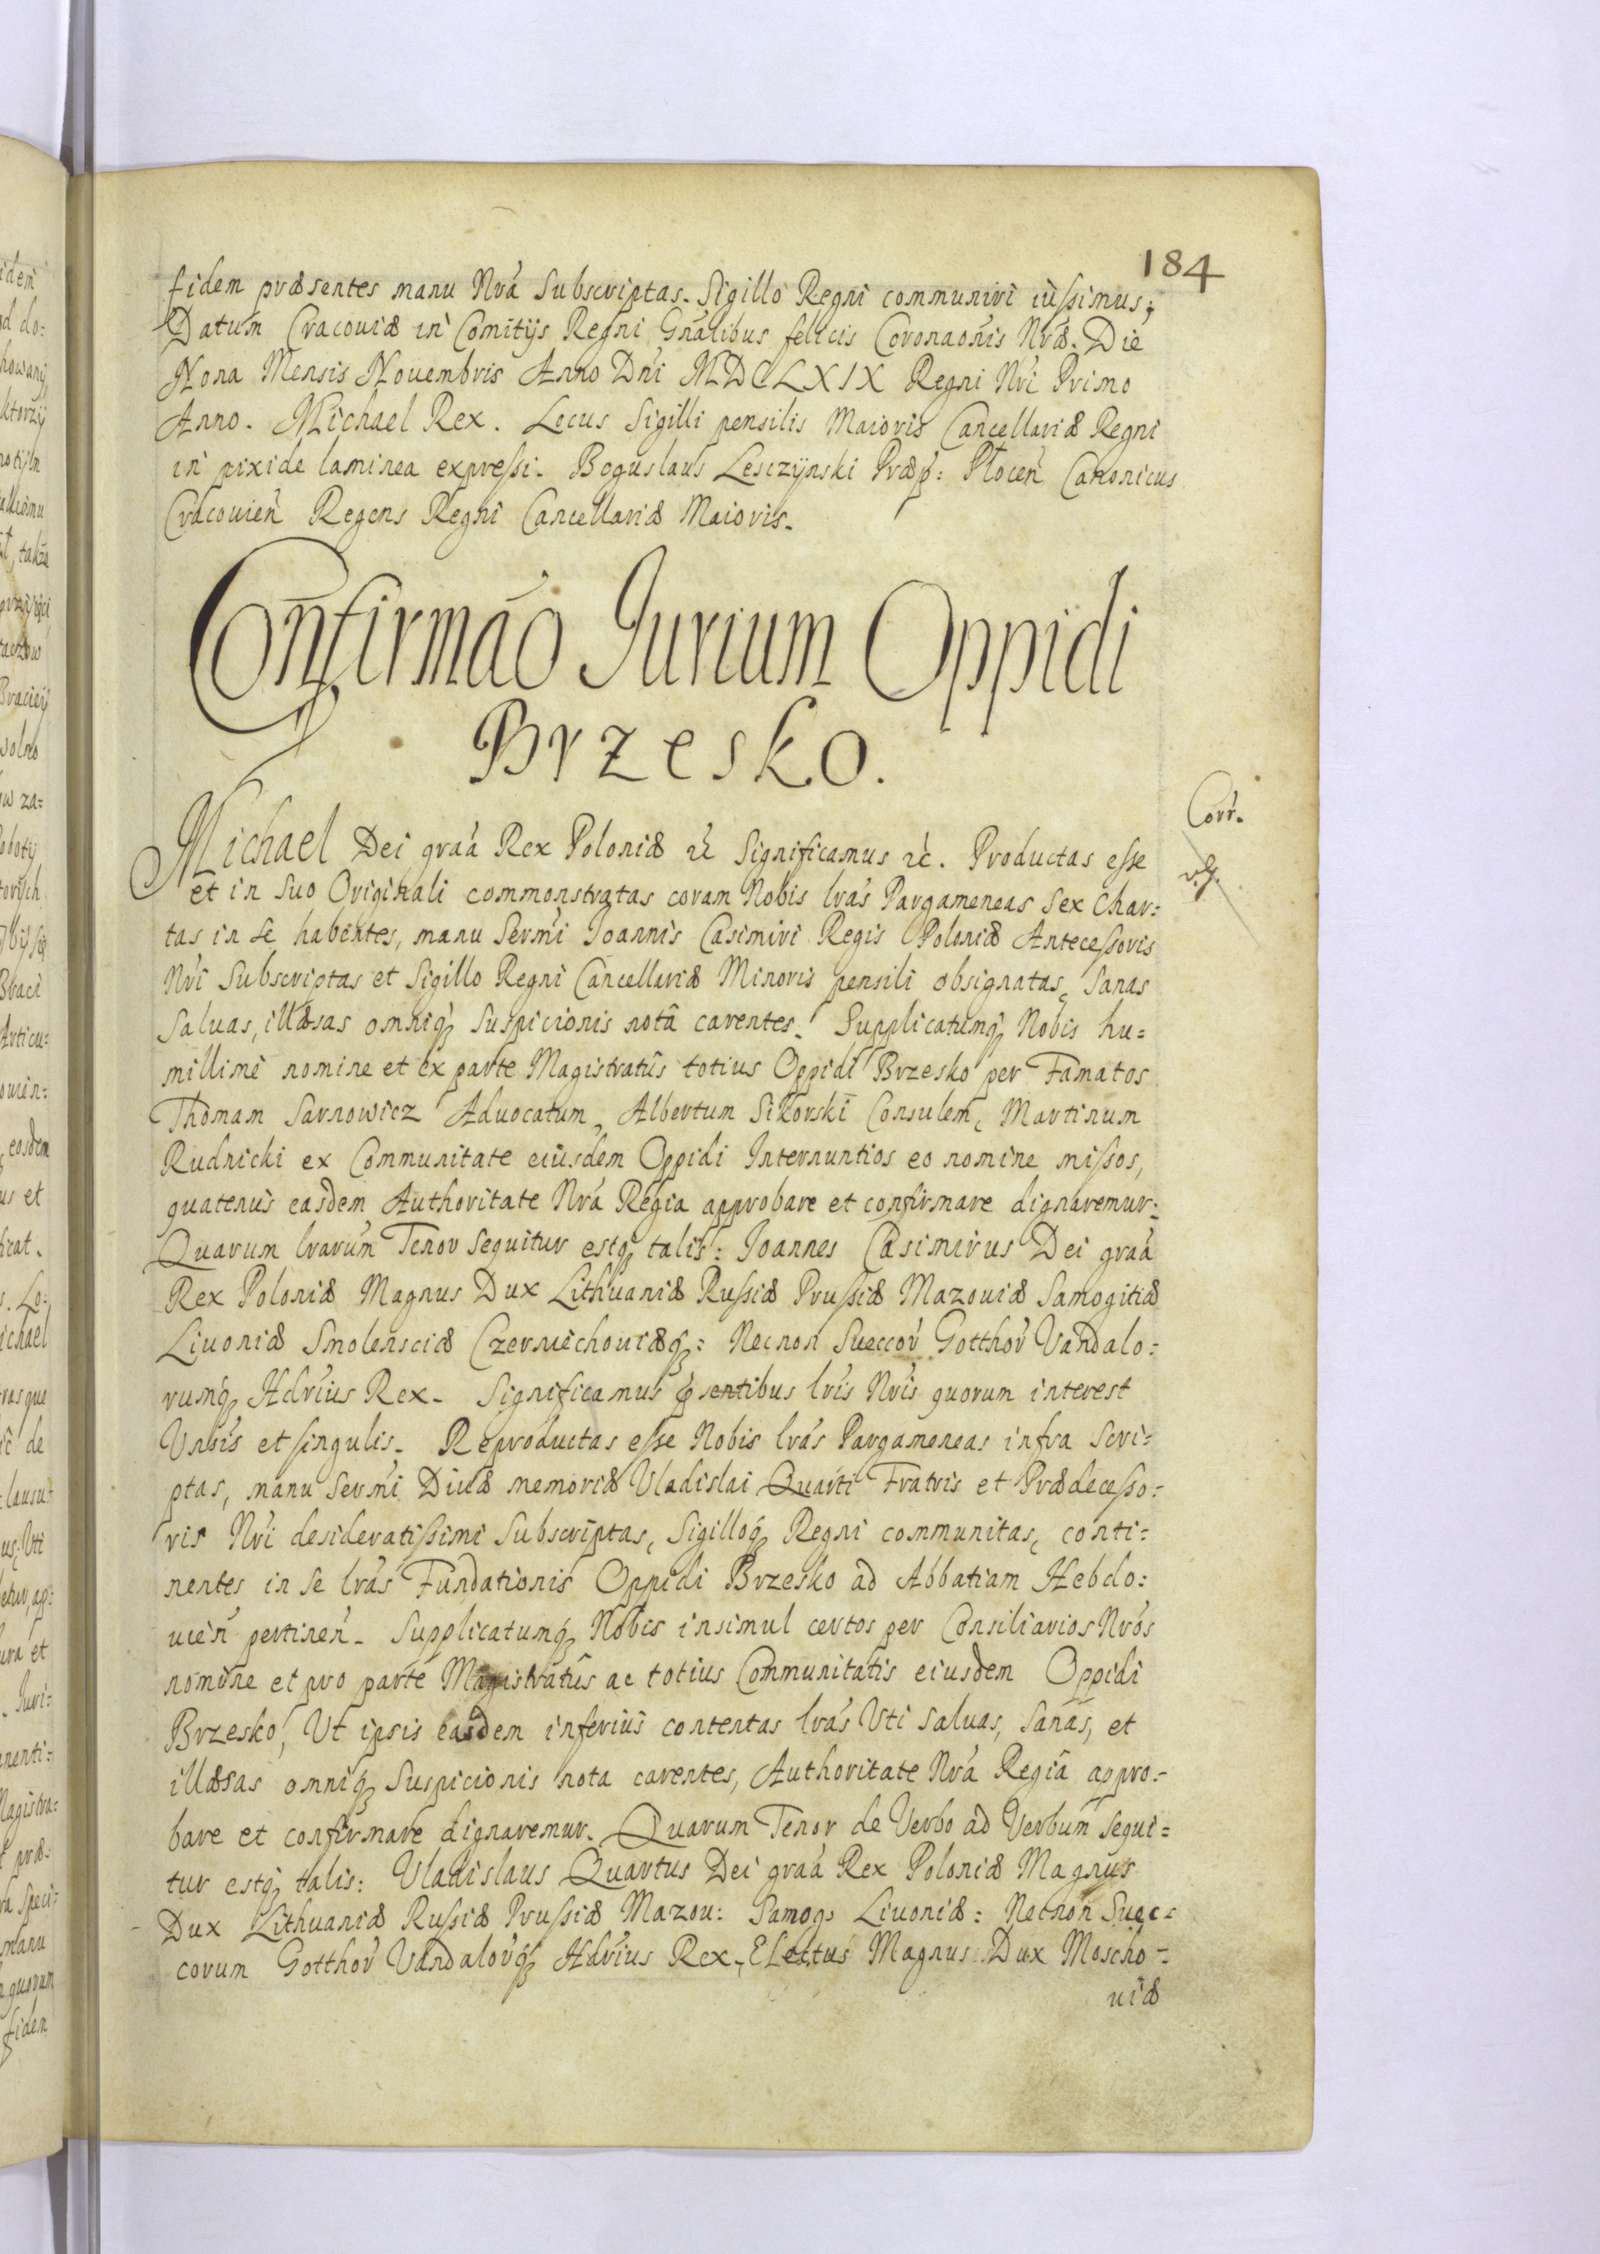 184
fidem præsentes manu Nrá Subscriptas. Sigillo Regni communiri iussimus;
Datum Cracouiæ in Comitijs Regni Gnálibus felicis Coronaónis Nræ. Die
Nona Mensis Nouembris Anno Dni MDCLXIX Regni Nri Primo
Anno. Michael Rex. Locus Sigilli pensilis Maioris Cancellariæ Regni
in pixide laminea expressi. Boguslaus Lesczÿnski Præp: Płocen Canonicus
Cracouien Regens Regni Cancellariæ Maioris.
Confirmáo Jurium Oppidi
Brzesko.
Michael Dei graá Rex Poloniæ &c Significamus &c. Productas esse
Corr.
et in Suo Originali commonstratas coram Nobis lrás Pargameneas Sex Char=
tas in se habentes, manu Sermi Joannis Casimiri Regis Poloniæ Antecessoris
Nri Subscriptas et Sigillo Regni Cancellariæ Minoris pensili obsignatas, Sanas
Saluas, illæsas omniq Suspicionis notâ carentes. Supplicatumq Nobis hu=
millimè nomine et ex parte Magistratûs totius Oppidi Brzesko per Famatos
Thomam Sarnowicz Aduocatum, Albertum Sikorski Consulem, Martinum
Rudnicki ex Communitate eiusdem Oppidi Internuntios eo nomine missos,
quatenus easdem Authoritate Nrá Regia approbare et confirmare dignaremur.
Quarum lrarum Tenor Sequitur estq talis: Joannes Casimirus Dei graá
Rex Poloniæ Magnus Dux Lithuaniæ Russiæ Prussiæ Mazouiæ Samogitiæ
Liuoniæ Smolensciæ Czerniechouiæq: Necnon Sueccor Gotthor Vandalo=
rumq Hdrius Rex. Significamus psentibus lris Nris quorum interest
Vnsis et singulis. Reproductas esse Nobis lrás Pargameneas infra Scri=
ptas, manu Sermi Diuæ memoriæ Vladislai Quarti Fratris et Prædecesso=
ris Nri desideratissimi Subscriptas, Sigilloq Regni communitas, conti=
nentes in se lrás Fundationis Oppidi Brzesko ad Abbatiam Hebdo=
uien pertinen. Supplicatumq Nobis insimul certos per Consiliarios Nros
nomine et pro parte Magistratûs ac totius Communitatis eiusdem Oppidi
Brzesko, Ut ipsis easdem inferius contentas lrás Uti saluas, Sanas, et
illæsas omniq Suspicionis nota carentes, Authoritate Nrá Regiâ appro=
bare et confirmare dignaremur. Quarum Tenor de Verbo ad Verbum Sequi=
tur estq talis: Vladislaus Quartus Dei graá Rex Poloniæ Magnus
Dux Lithuaniæ Russiæ Prussiæ Mazou: Samog: Liuoniæ: Necnon Suec=
corum Gotthor Vandalorq Hdrius Rex, Electus Magnus Dux Moscho=
uiæ